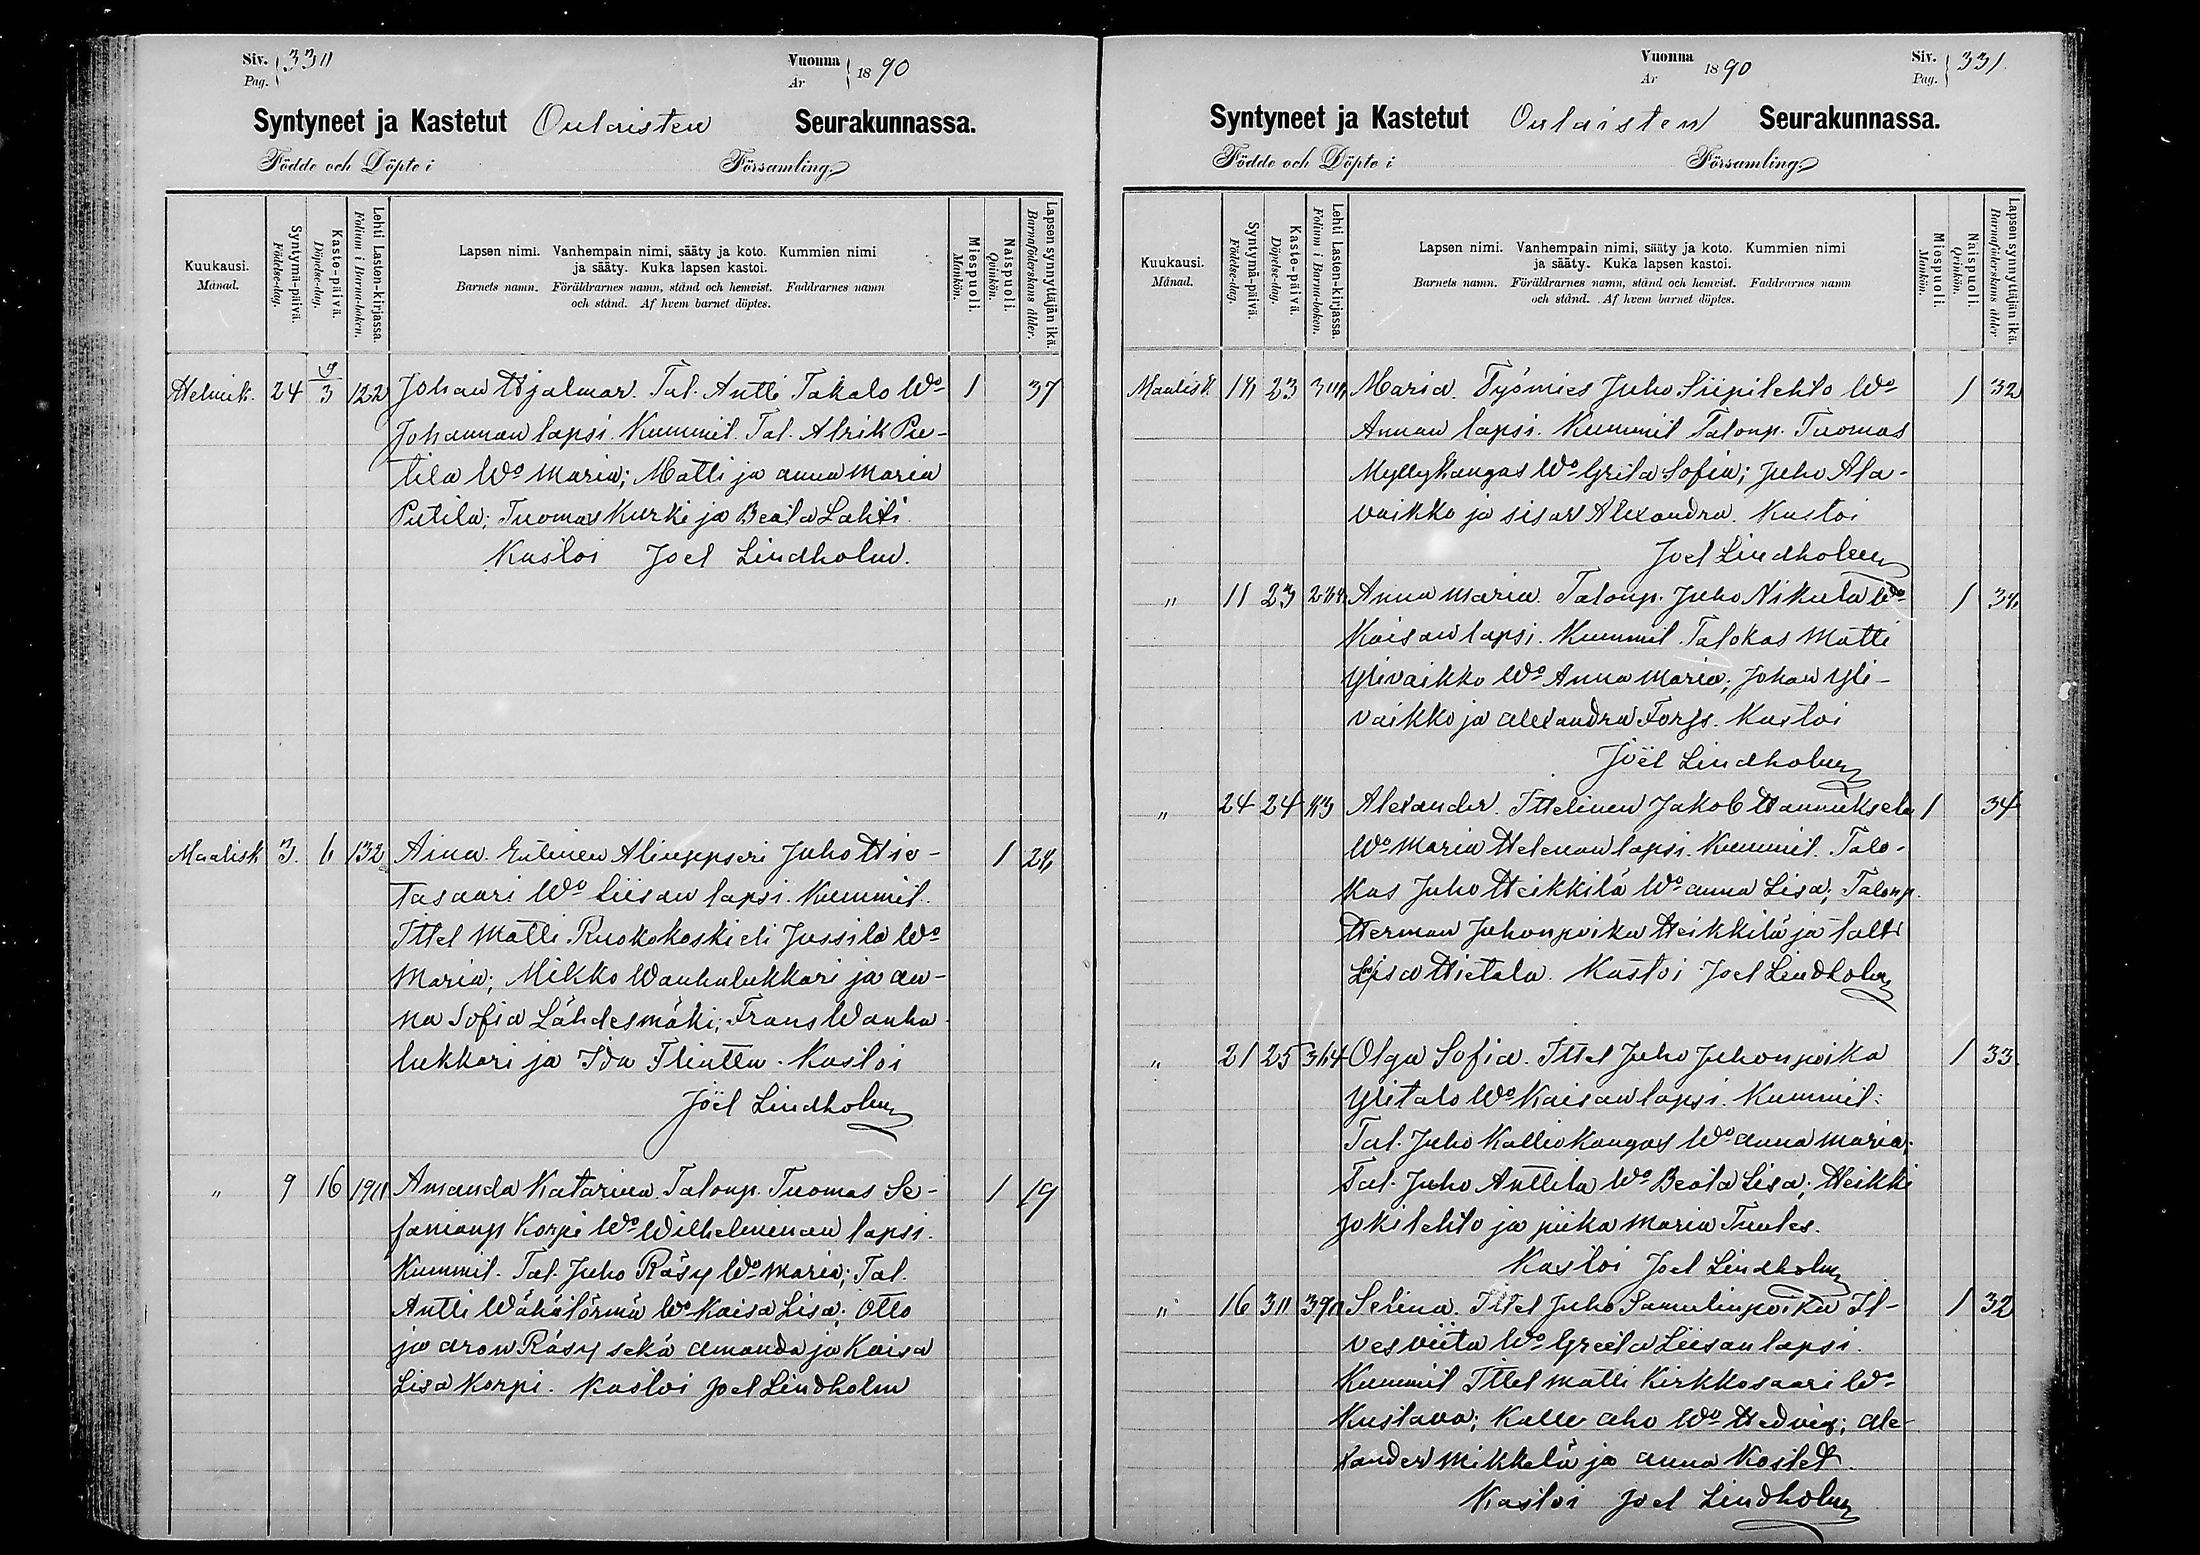 Siv. Pag. 330 Vuonna Ar 1890
Syntyneet ja Kastetut Oulaisten Seurakunnassa.
Födde och Döpte i Församling.
Kuukausi. Månad.
Syntymä-päivä. Födelse-dag.
Kaste-päivä. Döpelse-dag.
Lehti Lasten-kirjassa. Folium i Barna-boken.
Lapsen nimi. Vanhempain nimi, sääty ja koto. Kummien nimi
ja sääty. Kuka lapsen kastoi.
Barnets namn. Föräldrarnes namn, stånd och hemvist. Faddrarnes namn
och stånd. Af hvem barnet döptes.
Miespuoli. Mankön.
Naispuoli. Qvinkön.
Lapsen synnyttäjän ikä. Barnaföderskans ålder.
Helmik. 24 9/3 122 Johan Hjalmar. Tal. Antti Takalo Wo 1 37
Johannan lapsi. Kummit. Tal. Alrik Pu-
tila Wo Maria; Matti ja Anna Maria
Putila; Tuomas Kurki ja Beata Lahti.
Kastoi Joel Lindholm.
Maalisk 3. 6 132 Aina. Entinen Juho Hie- 1 28
tasaari Wo Liisan lapsi. Kummit.
Ittel Matti Ruokokoski eli Jussila Wo
Maria; Mikko Wanhalukkari ja An-
na Sofia Lähdesmäki; Frans Wanha
lukkari ja Ida Flinttu. Kastoi
Joel Lindholm
" 9 16 190 Amanda Katarina. Talonp. Tuomas Se-  1 19
faninp Korpi Wo Wilhelminan lapsi.
Kummit. Tal. Juho Räsy Wo Maria; Tal.
Antti Wähätörmä Wo Kaisa Lisa; Otto
ja Aron Räsy sekä Amanda ja Kaisa
Lisa Korpi. Kastoi Joel Lindholm
Vuonna Ar 1890 Siv. Pag. 331.
Syntyneet ja Kastetut Oulaisten Seurakunnassa.
Födde och Döpte i Församling.
Kuukausi. Månad.
Syntymä-päivä. Födelse-dag.
Kaste-päivä. Döpelse-dag.
Lehti Lasten-kirjassa. Folium i Barna-boken.
Lapsen nimi. Vanhempain nimi, sääty ja koto. Kummien nimi
ja sääty. Kuka lapsen kastoi.
Barnets namn. Föräldrarnes namn, stånd och hemvist. Faddrarnes namn
och stånd. Af hvem barnet döptes.
Miespuoli. Mankön.
Naispuoli. Qvinkön.
Lapsen synnyttäjän ikä. Barnaföderskans ålder
Maalisk. 23 Maria. Työmies Juho Siipilehto Wo 1 32
Annan lapsi. Kummit Talonp. Tuomas
Myllykangas Wo Grita Sofia; Juho Ala-
vaikko ja sisar Alexandra. Kastoi
Joel Lindholm
" 11 23 Anna Maria. Talonp. Juho Nikula Wo 1
Kaisan lapsi. Kummit. Talokas Matti
Ylivaikko Wo Anna Maria; Johan Yli-
vaikko ja Alexandra Forss. Kastoi
Joël Lindholm
" 24 24 Alexander. Ittelinen Jakob Hannuksela 1 34
Wo Maria Helenan lapsi. Kummit. Talo-
kas Juho Heikkilä Wo Anna Lisa; Talonp.
Herman Juhonpoika Heikkilä ja
Liisa Hietala. Kastoi Joel Lindholm
" 21 25 364 Olga Sofia. Ittel Juho Juhonpoika 1 33
Ylitalo Wo Kaisan lapsi. Kummit:
Tal. Juho Kalliokangas Wo Anna Maria;
Tal. Juho Anttila Wo Beata Lisa; Heikki
Jokilehto ja piika Maria Tuules.
Kastoi Joel Lindholm
" 16 30 390 Selina. Ittel Juho Samulinpoika Il- 1 32
vesviita Wo Greeta Liisan lapsi.
Kummit Ittel Matti Kirkkosaari Wo
Kustava; Kalle Aho Wo Hedvig; Ale-
xander Mikkelä ja Anna Kostet.
Kastoi Joel Lindholm